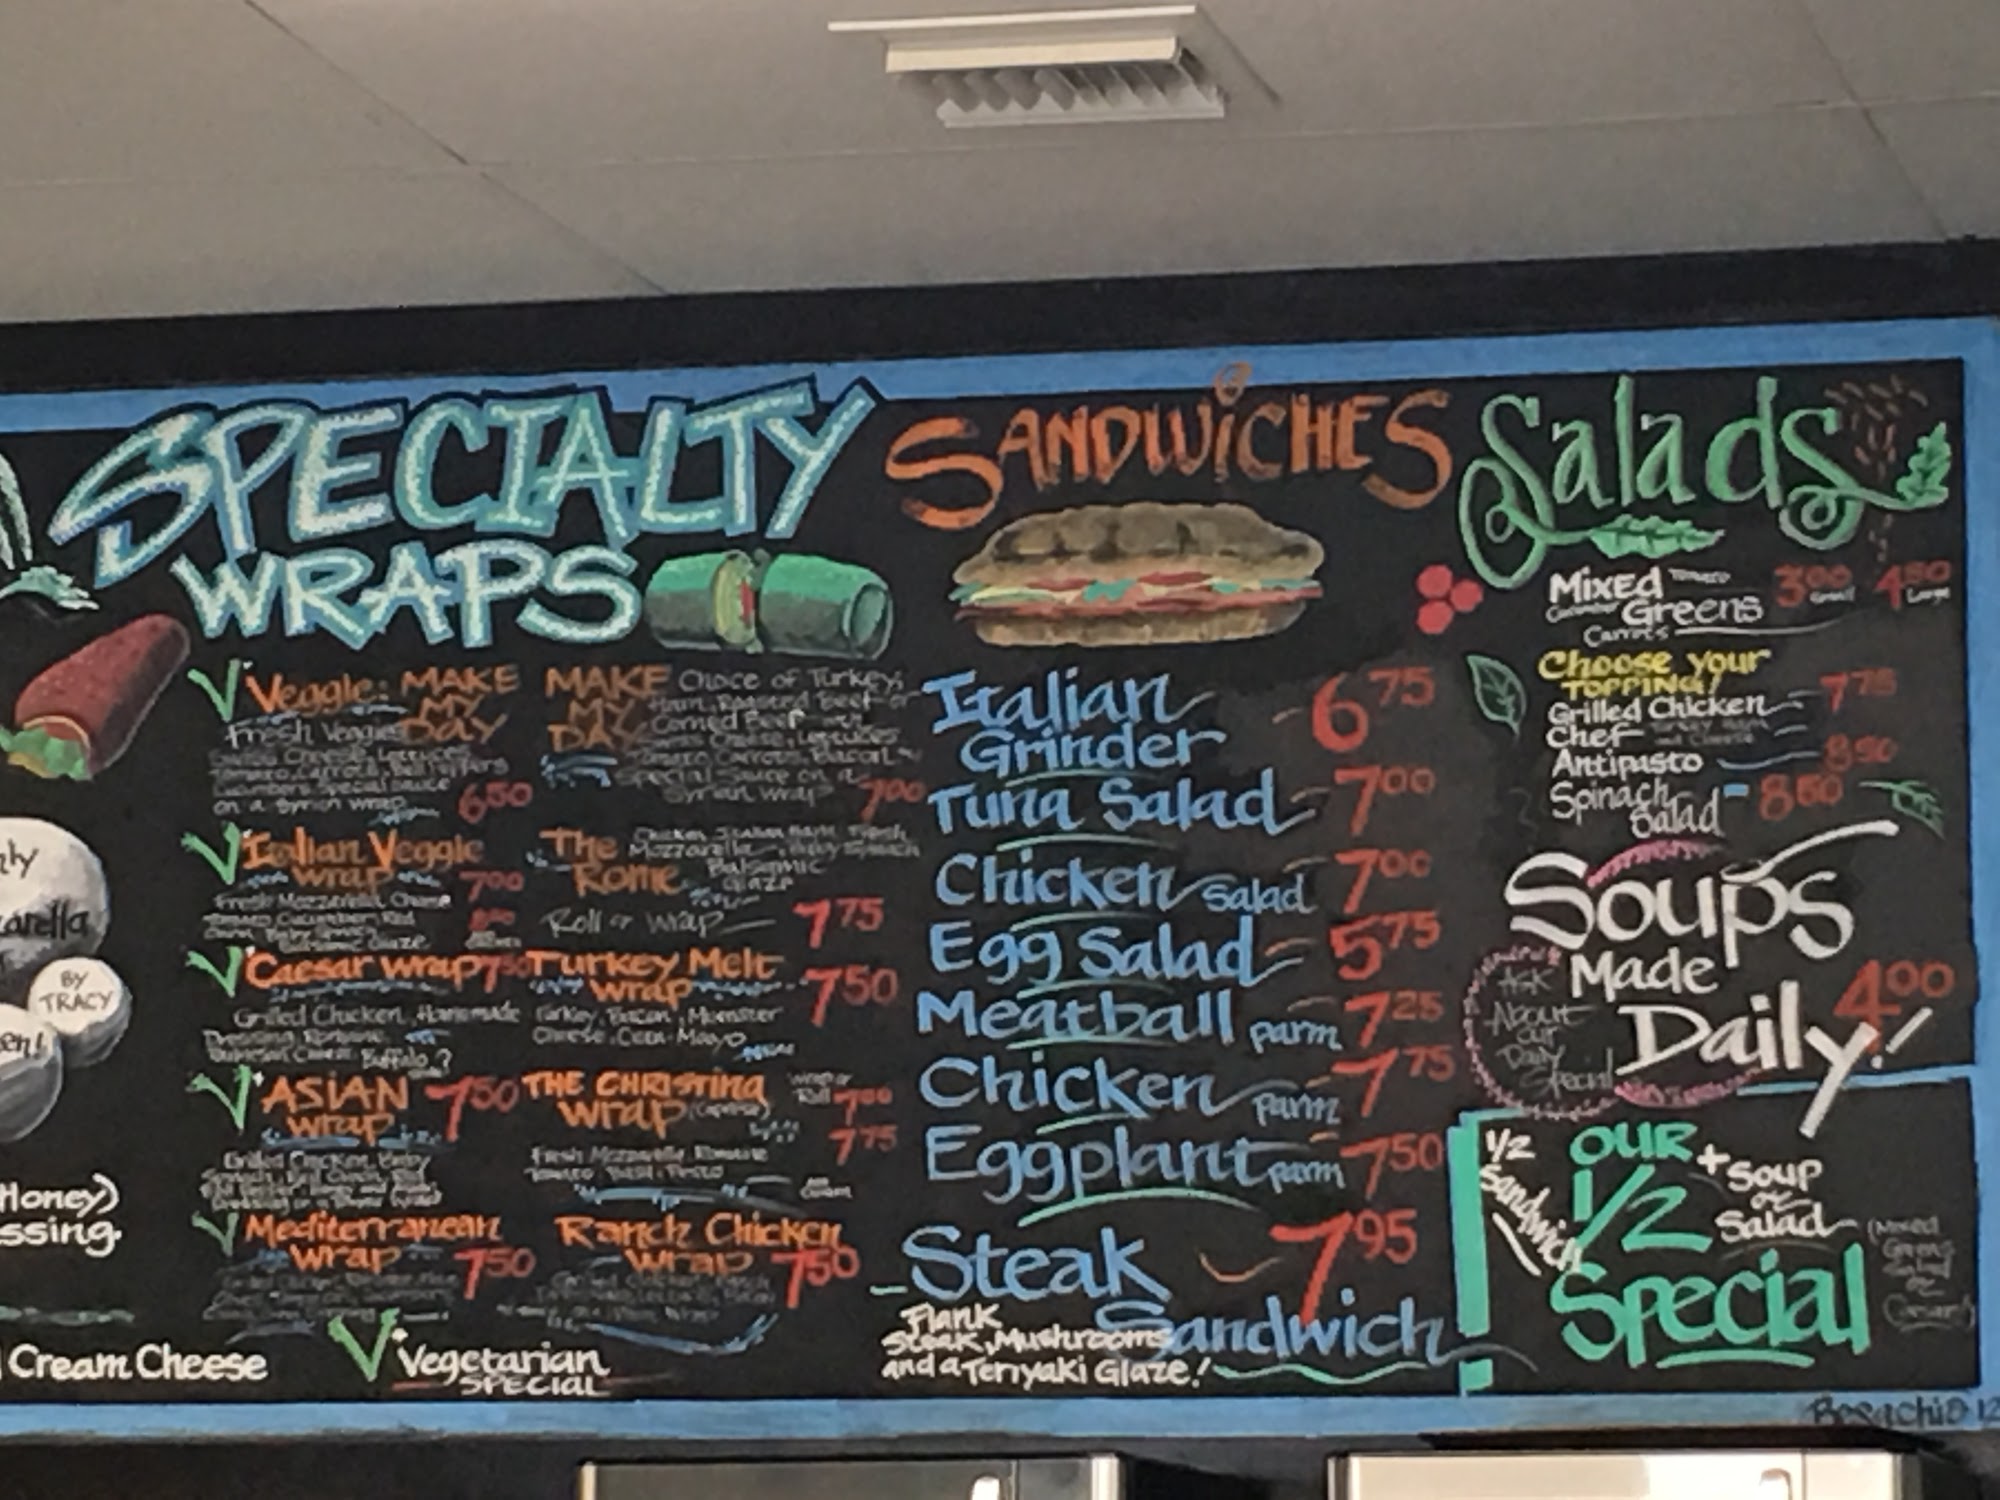 SPECIALTY
WRAPS
Veggie: MAKE
MY
DAY
Fresh Veggies
Swiss Cheese, Lettuce,
Tomato, Carrots, Bell Peppers
Cucumbers, Special Sauce
on a Syrian wrap
6 50
MAKE
MY
DAY
Choice of Turkey,
Ham, Roasted Beef or
Corned Beef with
Swiss Cheese, Lettuce,
Tomato, Carrots, Bacon
Special Sauce on a
Syrian wrap 7 00
Italian Veggie
wrap 7 00
Fresh Mozzarella
Tomato, Cucumber, Red
Balsamic Glaze
The
Rome
Chicken, Italian Ham, Fresh
Mozzarella, Baby Spinach
Balsamic
Glaze
Roll or Wrap 7 75
Caesar wrap 7 50
Grilled Chicken, Homemade
Dressing, Romaine
Parmesan Cheese, Buffalo?
Turkey Melt
wrap 7 50
Turkey, Bacon, Muenster
Cheese,
Mayo
ASIAN
wrap 7 50
Grilled Chicken, Baby
Spinach,
THE CHRISTINA
wrap (Caprese)
wrap or
Roll 7 00
7 75
Fresh Mozzarella, Romaine
Tomato, Basil, Pesto
Mediterranean
wrap 7 50
Ranch Chicken
Wrap 7 50
Vegetarian
SPECIAL
arella
BY
TRACY
en!
Honey)
ssing.
Cream Cheese
SANDWiCHES
Italian
Grinder 6 75
Tuna Salad 7 00
Chicken Salad 7 00
Egg Salad 5 75
Meatball parm 7 25
Chicken parm 7 75
Eggplant parm 7 50
Steak
Sandwich 7 95
Flank
Steak, Mushrooms
and a Teriyaki Glaze!
Salads
Mixed Tomato
Cucumber Greens
Carrots
3 00 Small 4 50 Large
Choose your
TOPPING!
Grilled Chicken 7 75
Chef
Antipasto 8 50
Spinach
Salad 8 50
Soups
Made
Daily! 4 00
ASK
About
our
Daily
Special
1/2
Sandwich
OUR
1/2
Special
+ Soup
or
Salad
(Mixed
Greens
Salad
or
Caesar)